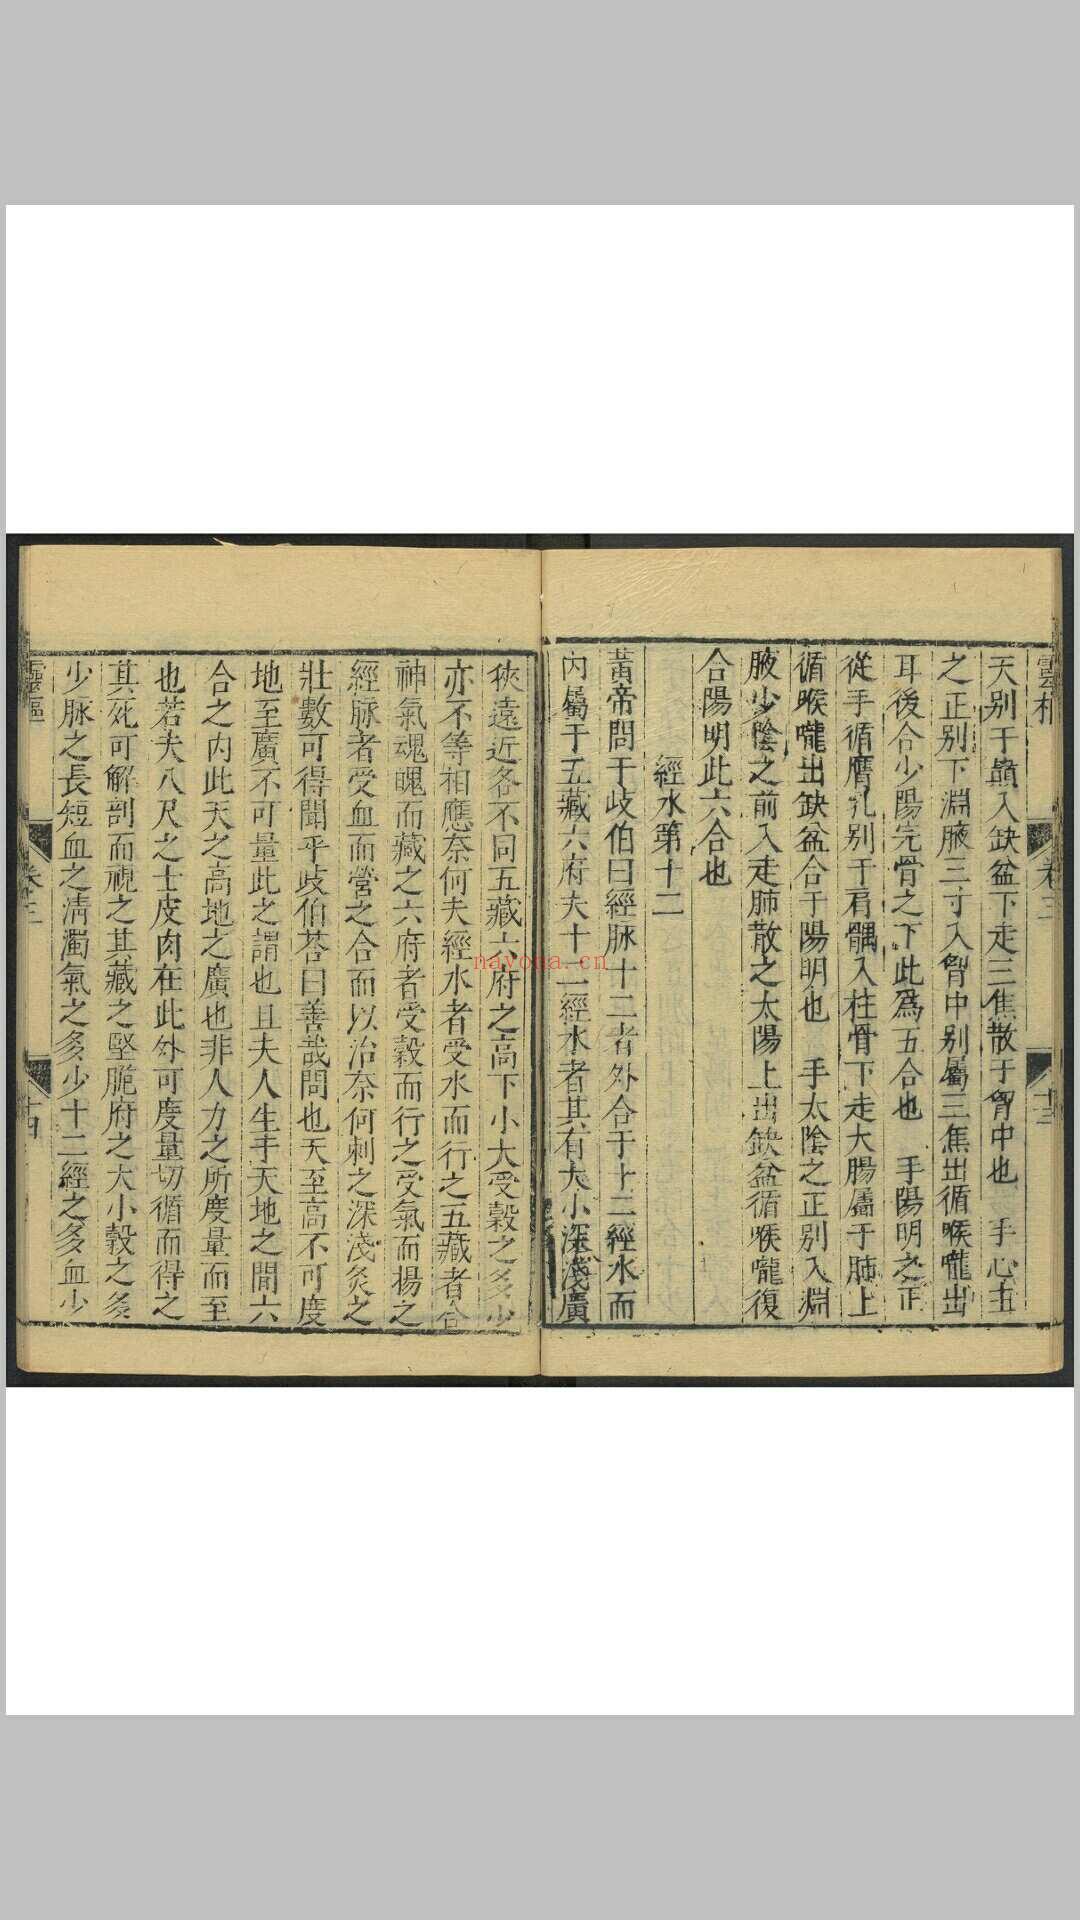 天别于巔入缺盆下走三焦散于胷中也　手心主
之正别下淵腋三寸入胷中别屬三焦出循喉嚨出
耳後合少陽完骨之下此爲五合也　手陽明之正
從手循膺乳别于肩髃入柱骨下走大腸屬于肺上
循喉嚨出缺盆合于陽明也　手太陰之正别入淵
腋少陰之前入走肺散之太陽上出缺盆循喉嚨復
合陽明此六合也
經水第十二
黃帝問于歧伯曰經脉十二者外合于十二經水而
内屬于五藏六府夫十二經水者其有大小深淺廣
狹遠近各不同五藏六府之高下小大受穀之多少
亦不等相應奈何夫經水者受水而行之五藏者合
神氣魂魄而藏之六府者受穀而行之受氣而揚之
經脉者受血而營之合而以治奈何刺之深淺灸之
壯數可得聞乎歧伯荅曰善哉問也天至高不可度
地至廣不可量此之謂也且夫人生于天地之間六
合之内此天之高地之廣也非人力之所度量而至
也若夫八尺之士皮肉在此外可度量切循而得之
其死可解剖而視之其藏之堅脆府之大小穀之多
少脉之長短血之清濁氣之多少十二經之多血少
靈樞
卷三
十四
卷三
十三
nayona.cn